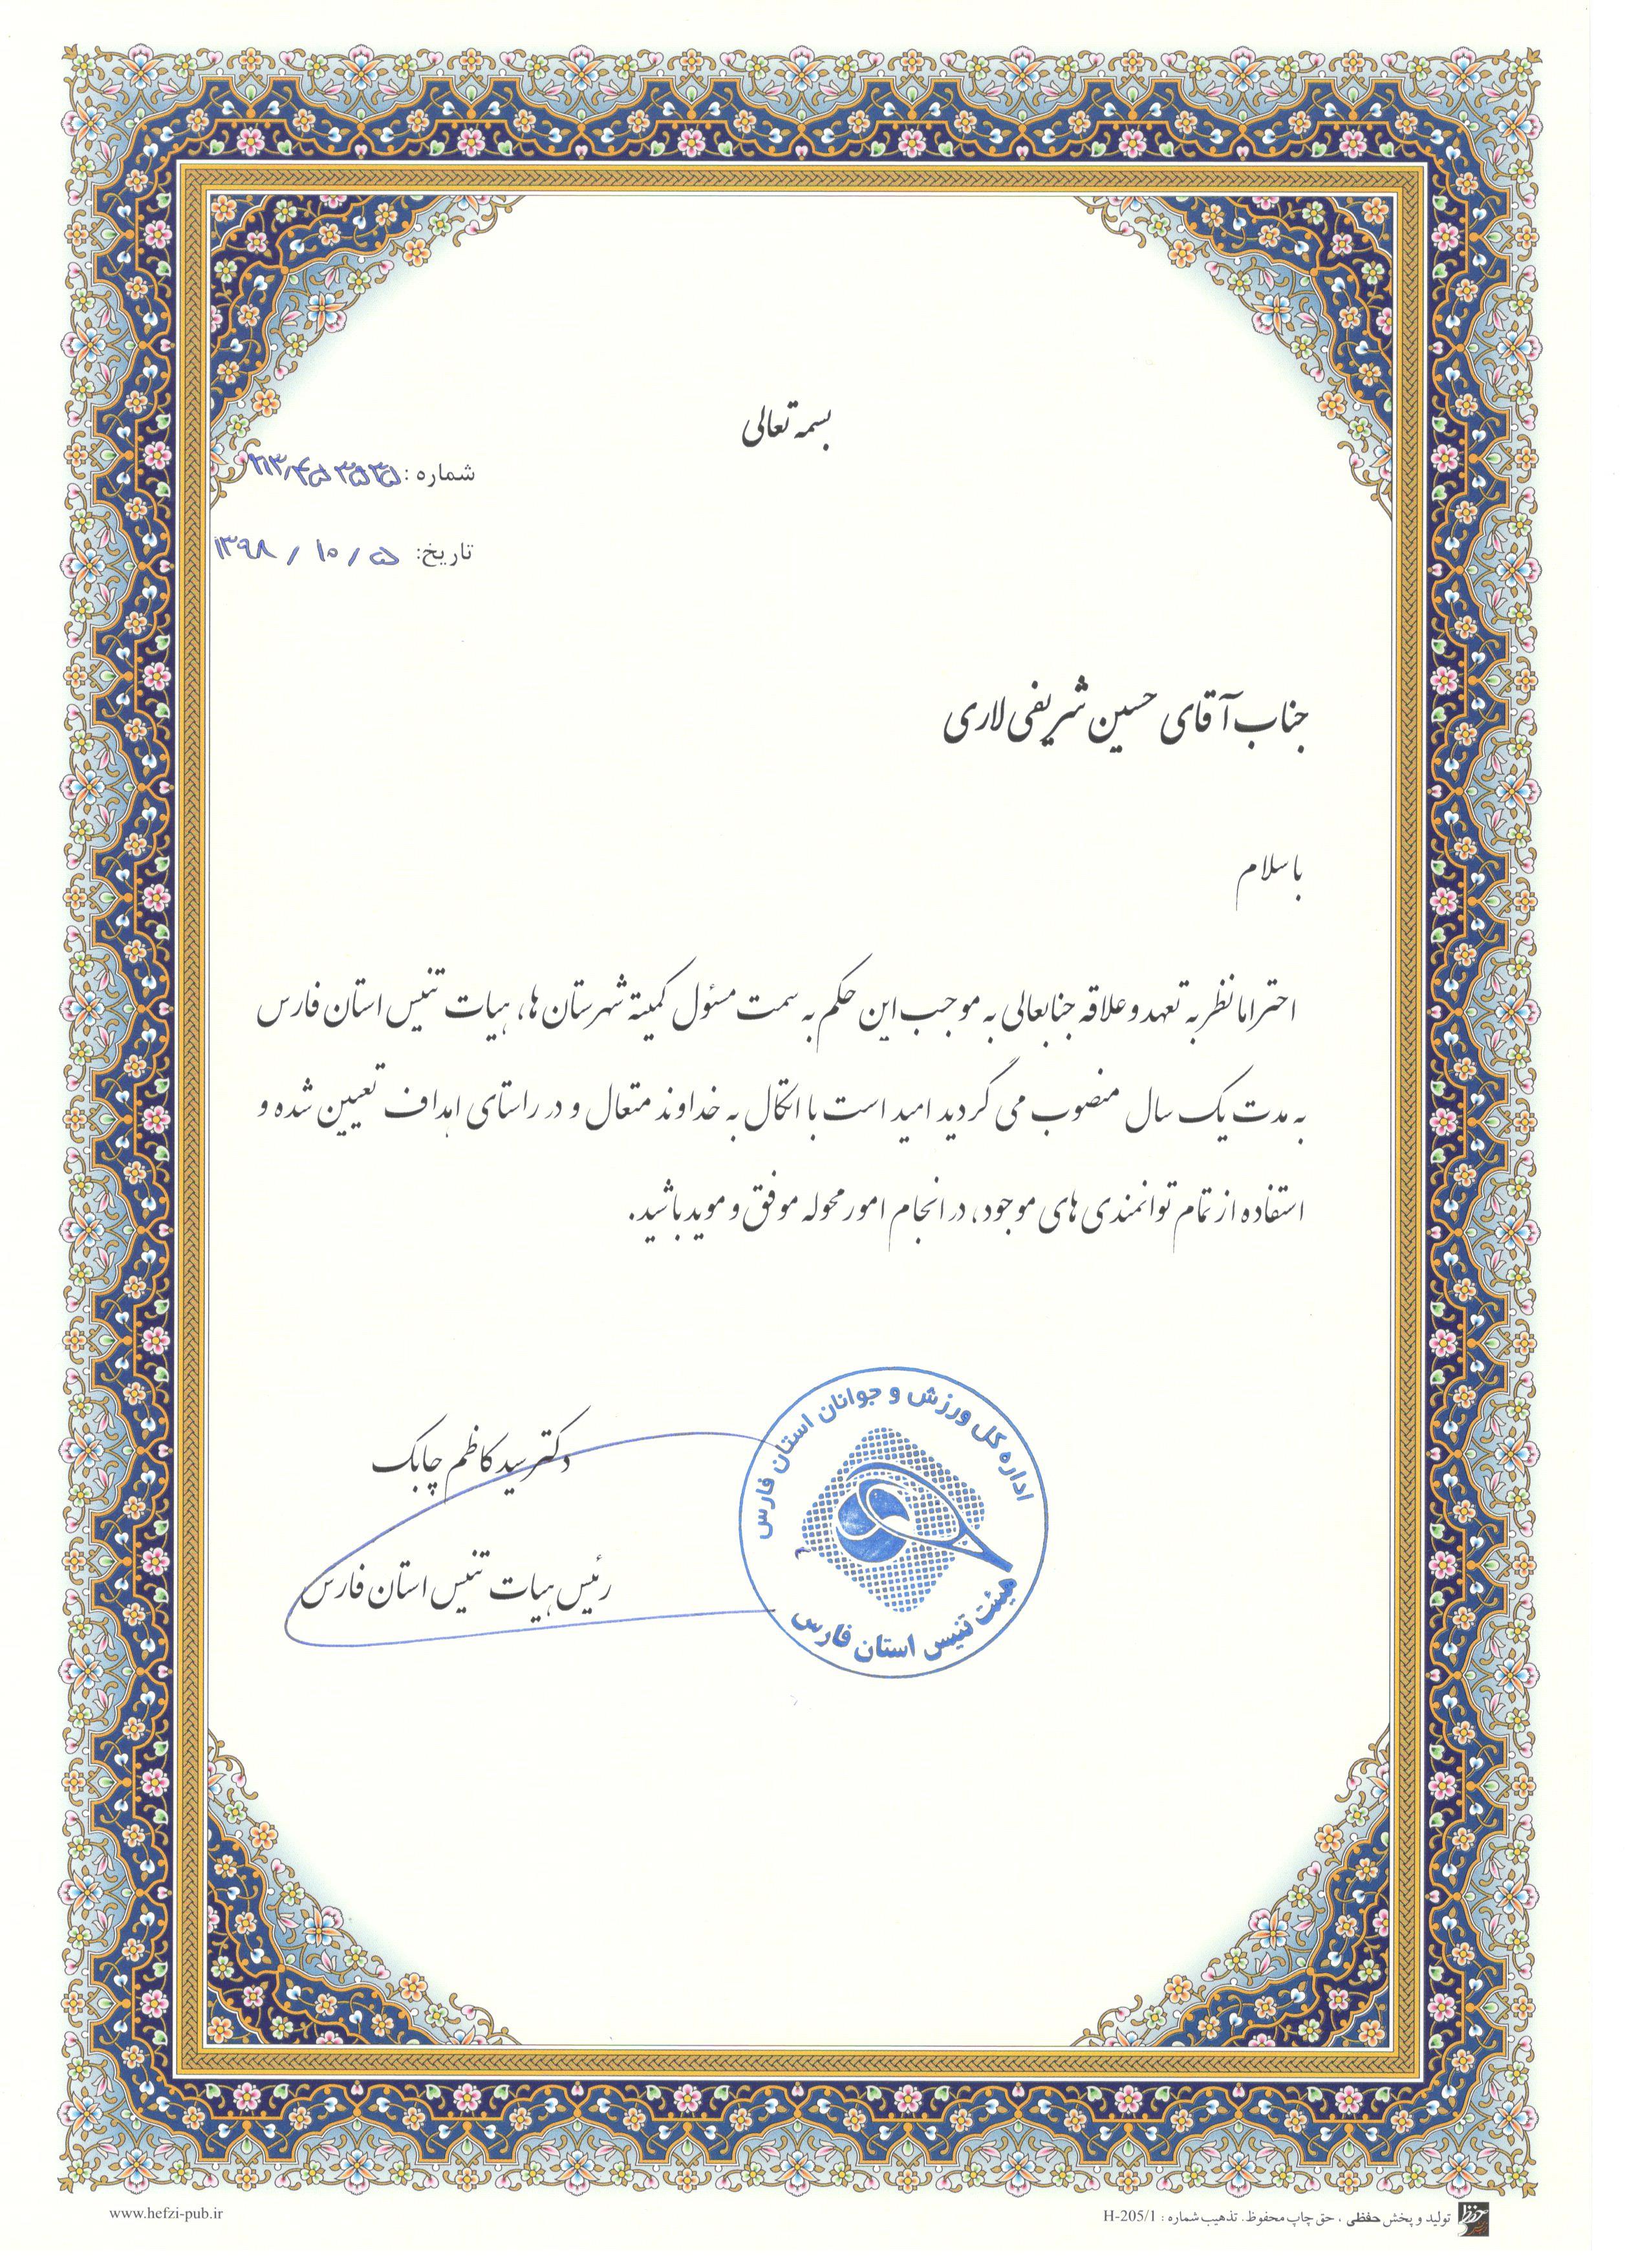 بسمه تعالی
شماره :
تاریخ: ۱۳۹۸ / ۱۰ / ۵
جناب آقای حسین شریفی لاری
با سلام
احتراما نظر به تعهد و علاقه جنابعالی به موجب این حکم به سمت مسئول کمیته شهرستان ها، هیات تنیس استان فارس
به مدت یک سال منصوب می گردید امید است با اتکال به خداوند متعال و در راستای اهداف تعیین شده و
استفاده از تمام توانمندی های موجود، در انجام امور محوله موفق و موید باشید.
دکتر سید کاظم چابک
رئیس هیات تنیس استان فارس
اداره کل ورزش و جوانان استان فارس
هیئت تنیس استان فارس
www.hefzi-pub.ir
تولید و پخش حفظی ، حق چاپ محفوظ. تذهیب شماره : H-205/1